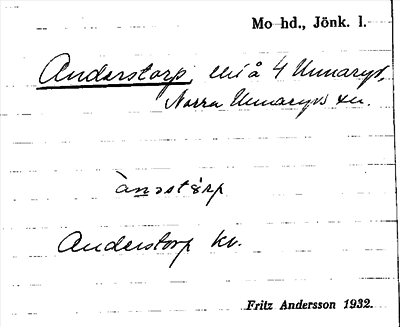 Mo hd., Jönk. l.
Anderstorp, lhl å 4 Unnaryd,
Norra Unnaryds sn.
ànəstårp
Anderstorp kv.
Fritz Andersson 1932.